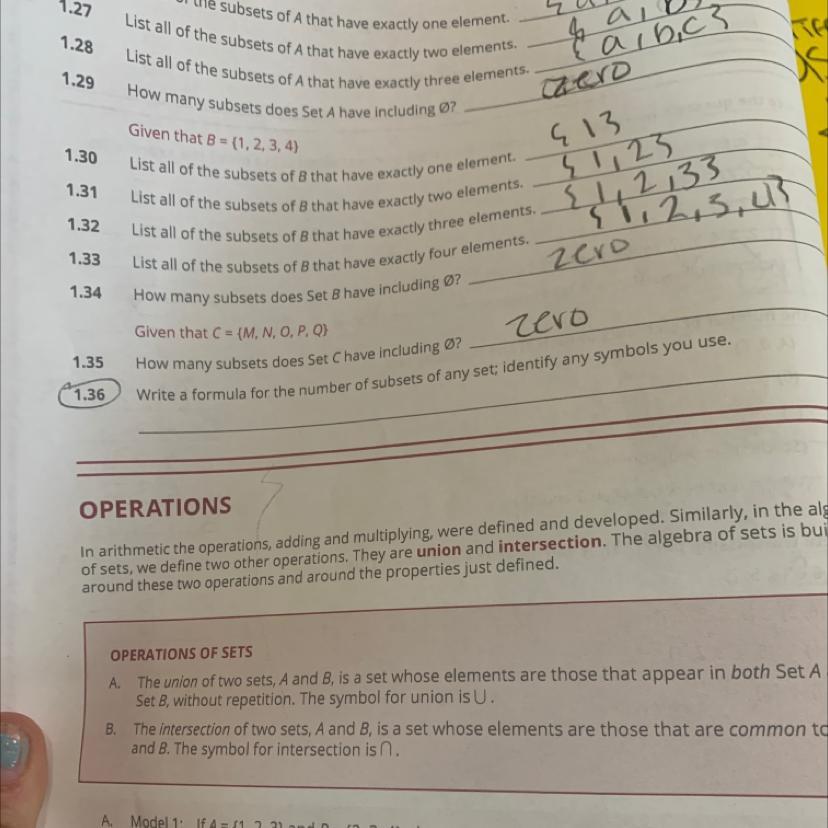 the subsets of A that have exactly one element.
1.27 List all of the subsets of A that have exactly two elements. { a, b
1.28 List all of the subsets of A that have exactly three elements. { a, b, c }
1.29 How many subsets does Set A have including Ø? zero
Given that B = {1, 2, 3, 4}
1.30 List all of the subsets of B that have exactly one element. { 1 }
1.31 List all of the subsets of B that have exactly two elements. { 1, 2 }
1.32 List all of the subsets of B that have exactly three elements. { 1, 2, 3 }
1.33 List all of the subsets of B that have exactly four elements. { 1, 2, 3, 4 }
1.34 How many subsets does Set B have including Ø? zero
Given that C = {M, N, O, P, Q}
1.35 How many subsets does Set C have including Ø? zero
1.36 Write a formula for the number of subsets of any set; identify any symbols you use.
OPERATIONS
In arithmetic the operations, adding and multiplying, were defined and developed. Similarly, in the alg
of sets, we define two other operations. They are union and intersection. The algebra of sets is bui
around these two operations and around the properties just defined.
OPERATIONS OF SETS
A. The union of two sets, A and B, is a set whose elements are those that appear in both Set A
Set B, without repetition. The symbol for union is ∪.
B. The intersection of two sets, A and B, is a set whose elements are those that are common to
and B. The symbol for intersection is ∩.
A. Model 1: If A = {1, 2, 3} and B